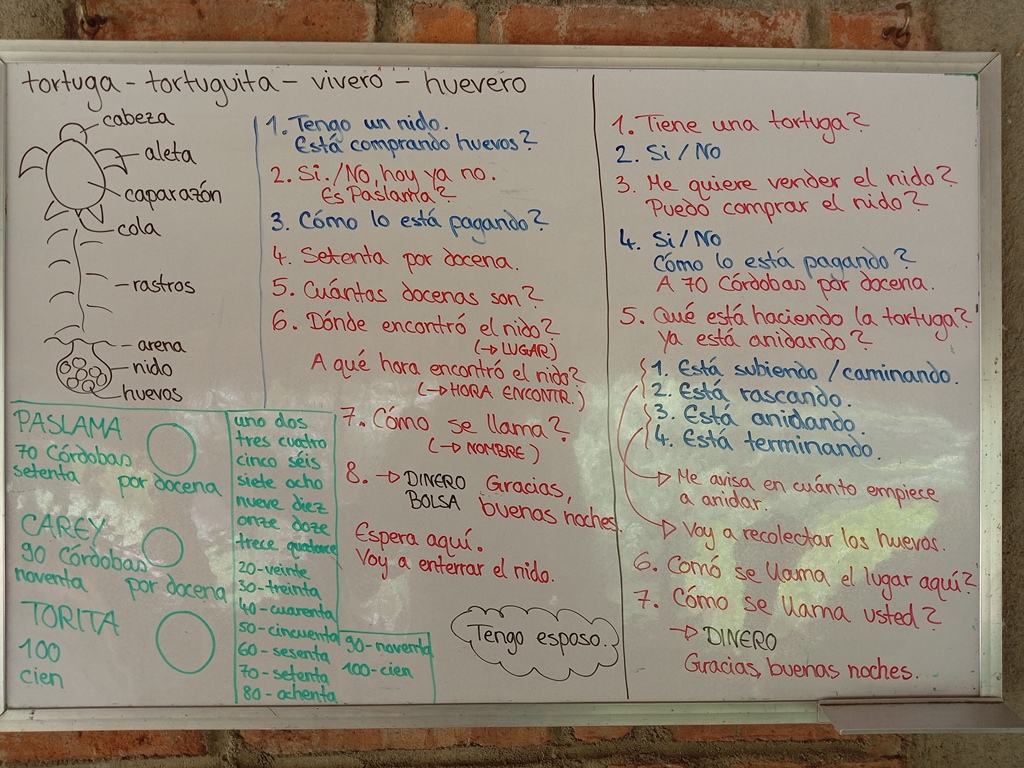 tortuga - tortuguita - vivero - huevero
cabeza
aleta
caparazón
cola
rastros
arena
nido
huevos
1. Tengo un nido.
Está comprando huevos?
2. Si./No, hoy ya no.
Es Paslama?
3. Cómo lo está pagando?
4. Setenta por docena.
5. Cuántas docenas son?
6. Dónde encontró el nido?
(→ LUGAR)
A qué hora encontró el nido?
(→ HORA ENCONTR.)
7. Cómo se llama?
(→ NOMBRE)
8. → DINERO Gracias,
BOLSA buenas noches.
Espera aquí.
Voy a enterrar el nido.
Tengo esposo.
PASLAMA
70 Córdobas
setenta por docena
CAREY
90 Córdobas
noventa por docena
TORITA
100
cien
uno dos
tres cuatro
cinco séis
siete ocho
nueve diez
onze doze
trece quatorce
20-veinte
30-treinta
40-cuarenta
50-cincuenta
60-sesenta
70-setenta
80-ochenta
90-noventa
100-cien
1. Tiene una tortuga?
2. Si / No
3. Me quiere vender el nido?
Puedo comprar el nido?
4. Si / No
Cómo lo está pagando?
A 70 Córdobas por docena.
5. Qué está haciendo la tortuga?
Ya está anidando?
1. Está subiendo / caminando.
2. Está rascando.
3. Está anidando.
4. Está terminando.
→ Me avisa en cuánto empiece
a anidar.
→ Voy a recolectar los huevos.
6. Comó se llama el lugar aquí?
7. Cómo se llama usted?
→ DINERO
Gracias, buenas noches.